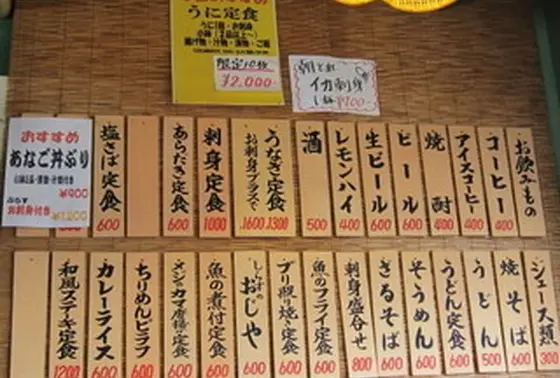 うに定食
限定10食
¥2,000
朝とれ
イカ刺身
おすすめ
あなご丼ぷり
¥900
お刺身付き ¥1200
お飲みもの
コーヒー 400
アイスコーヒー 400
焼酎 400
ビール 600
生ビール 600
レモンハイ 400
酒 500
うなぎ定食 1300
お刺身プラスで 1600
刺身定食 1000
あらだき定食 600
塩さば定食 600
ジュース類 300
焼そば 600
うどん 500
うどん定食 600
そうめん 600
ざるそば 600
刺身盛合せ 800
魚のフライ定食 600
ブリ照り焼き定食 600
しらすのおじや 600
魚の煮付定食 600
ちりめんピラフ 600
カレーライス 600
和風ステーキ定食 1200